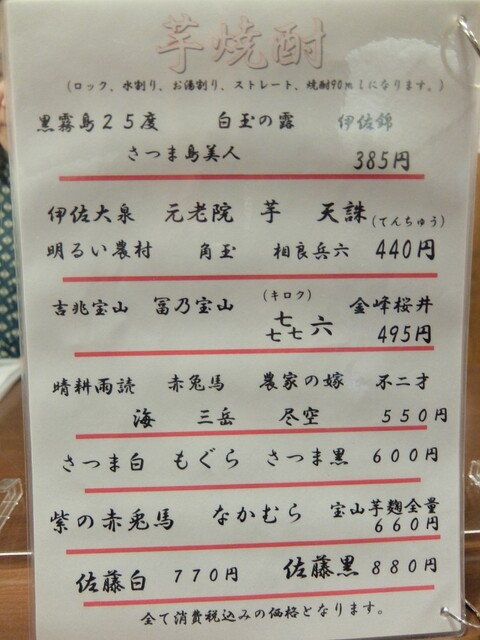 芋焼酎
(ロック、水割り、お湯割り、ストレート、焼酎90mlになります。)
黒霧島25度 白玉の露 伊佐錦
さつま島美人 385円
伊佐大泉 元老院 芋 天誅(てんちゅう)
明るい農村 角玉 相良兵六 440円
(キロク)
吉兆宝山 冨乃宝山 七七七 六 金峰桜井
495円
晴耕雨読 赤兎馬 農家の嫁 不二才
海 三岳 尽空 550円
さつま白 もぐら さつま黒 600円
紫の赤兎馬 なかむら 宝山芋麹全量
660円
佐藤白 770円 佐藤黒 880円
全て消費税込みの価格となります。